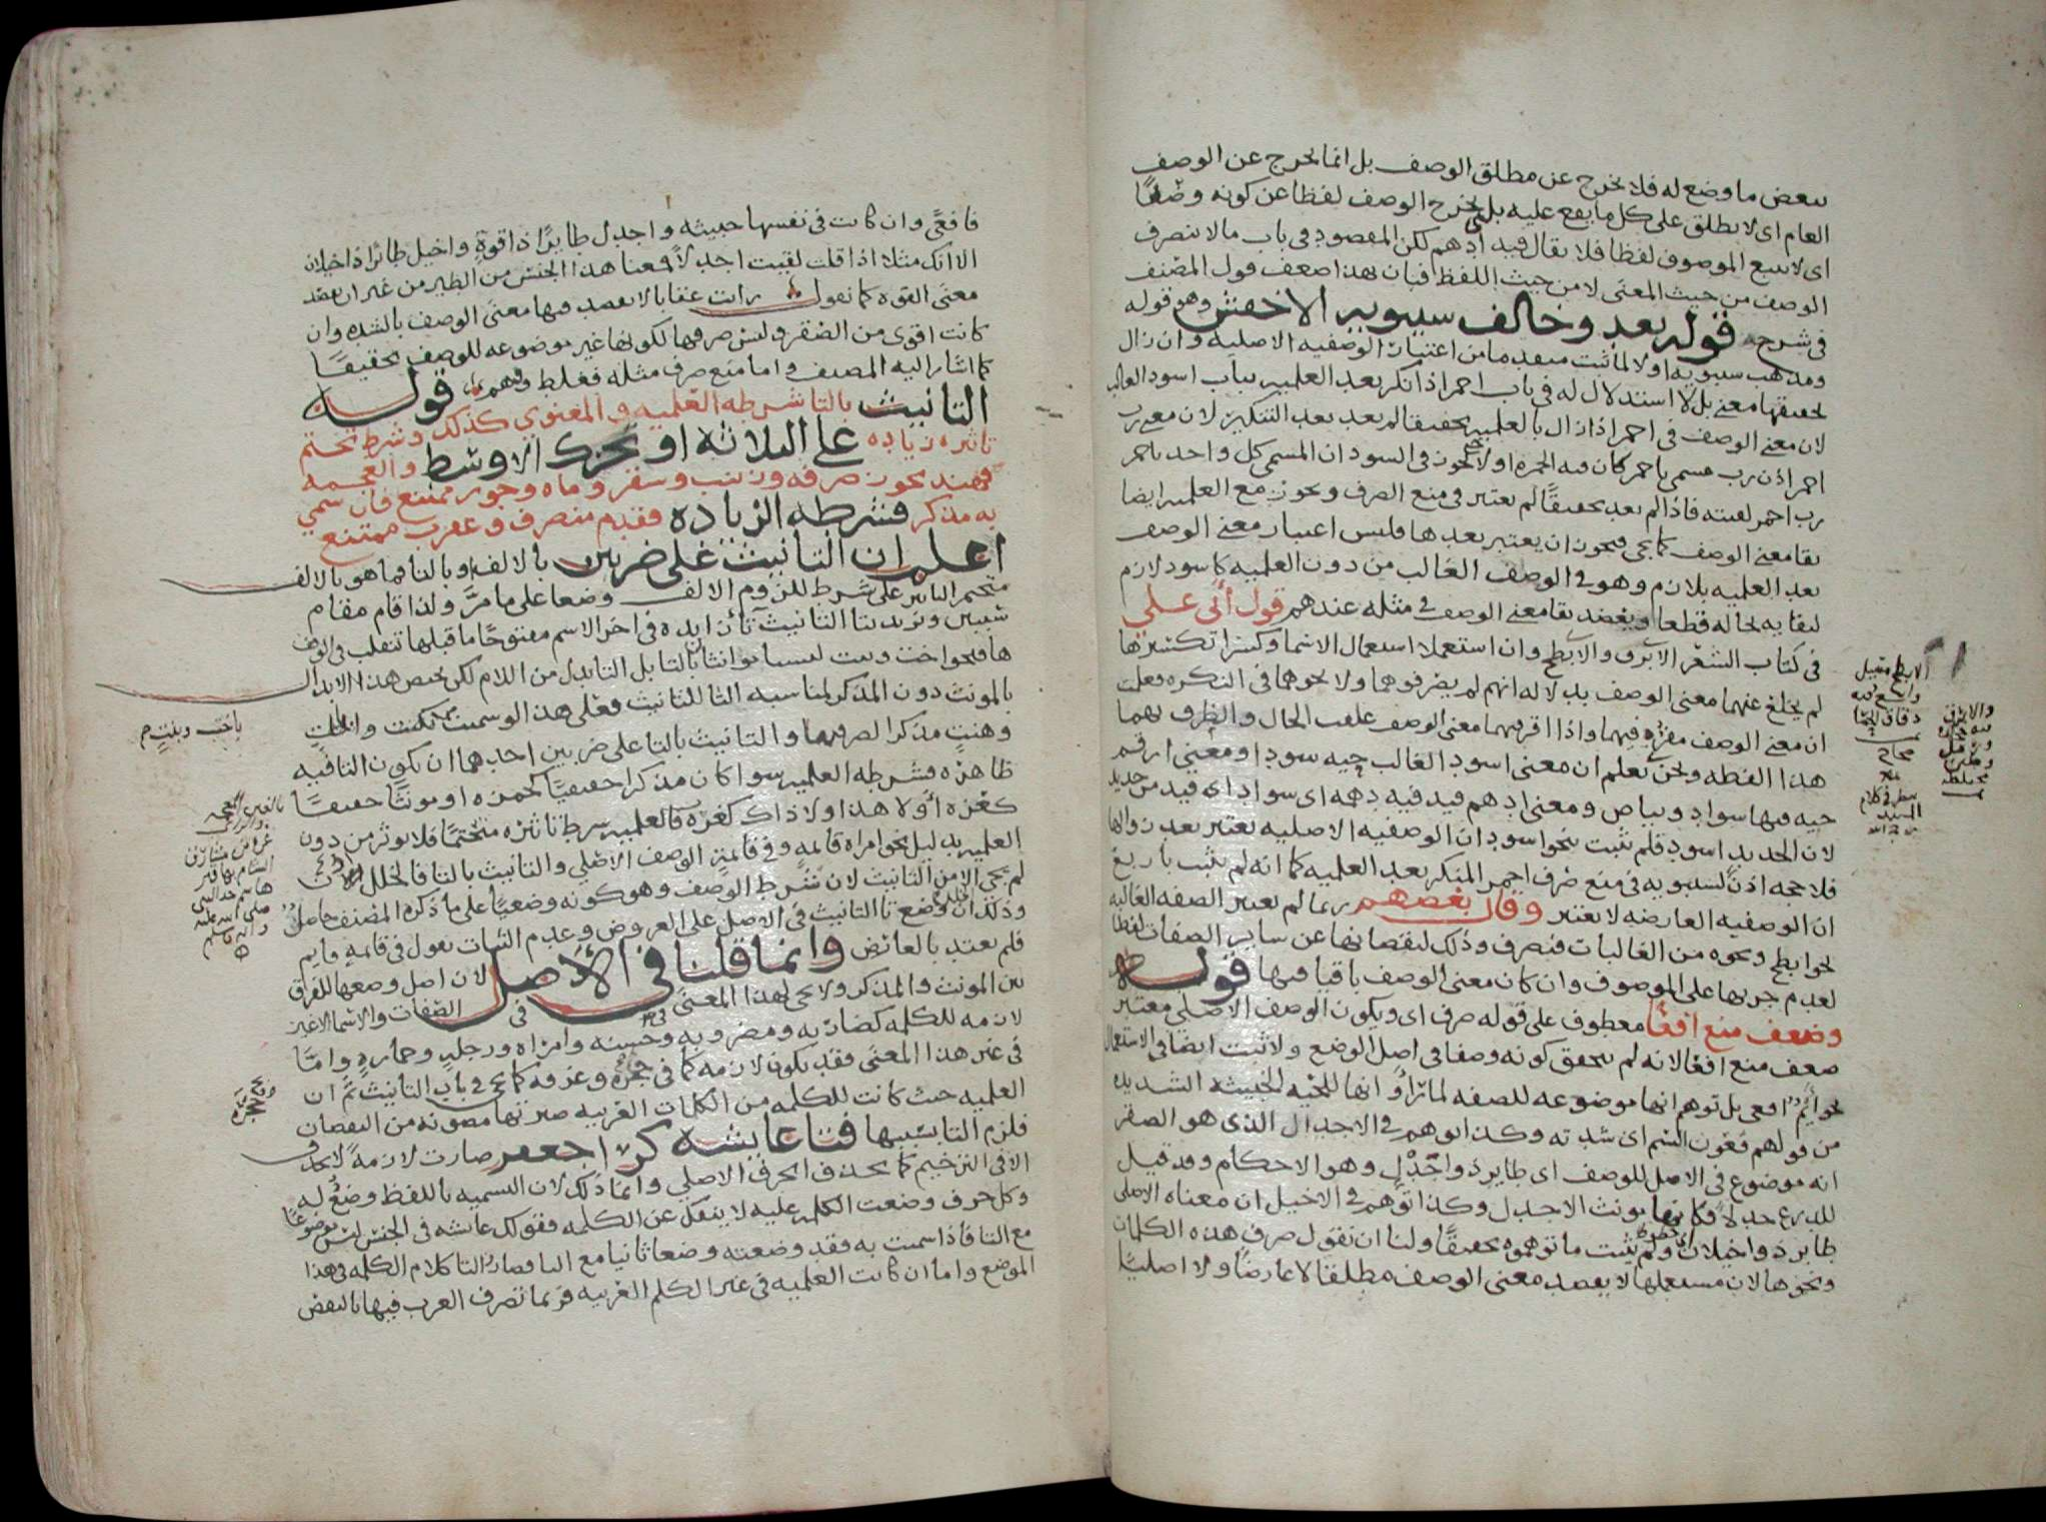 ببعض ما وضع له فلا يخرج عن مطلق الوصف بل انما يخرج عن الوصف
العام اى لا يطلق على كل ما يقع عليه بلى يخرج الوصف لفظا عن كونه وصفًا
اى لا يتبع الموصوف لفظا فلا يقال قيد ادهم لكن المقصود فى باب ما لا ينصرف
الوصف من حيث المعنى لا من حيث اللفظ فبان بهذا ضعف قول المصنف
فى شرح قوله بعد وخالف سيبويه الاخفش وهو قوله
ومذهب سيبويه اولا لما ثبت من اعتبار الوصفيه الاصلية وان زال
تحقيقها معنى بل لا استدلال له فى باب احمر اذا نكر بعد العلميه بباب اسود الغالب
لان معنى الوصف فى احمر اذا زال بالعلميه تحقيقا لم يعد بعد التنكير لان معنى رب
احمر اذن رب مسمى باحمر كان فيه الحمرة اولا يجوز فى السودان المسمى كل واحد باحمر
رب احمر لقيته فاذا لم يعد تحقيقًا لم يعتبر فى منع الصرف ويجوز مع العلميه ايضا
بقا معنى الوصف كما يجى فيجوز ان يعتبر بعدها فليس اعتبار معنى الوصف
بعد العلميه بلازم وهو فى الوصف الغالب من دون العلميه كاسود لازم
لبقايه بحاله قطعا ويعضد بقا معنى الوصف فى مثله عندهم قول أبى على
فى كتاب الشعر الابرق والابطح وان استعملا استعمال الاسما وكسرا تكسيرها
لم يخلع عنهما معنى الوصف بدلالة انهم لم يصرفوهما ولا نحوهما فى النكره فعلمت
ان معنى الوصف مقرّ فيهما واذا اقر فيهما معنى الوصف علقت الحال والظرف بهما
هذا لفظه ونحن نعلم ان معنى اسود الغالب حيه سودا ومعنى ارقم
حيه فيها سواد وبياض ومعنى ادهم قيد فيه دهمه اى سواد اى قيد من حديد
لان الحديد اسود فلم يثبت بنحو اسود ان الوصفيه الاصليه يعتبر بعد زوالها
فلا حجه اذن لسيبويه فى منع صرف احمر المنكر بعد العلميه كما انه لم يثبت باربع
ان الوصفيه العارضه لا يعتبر وقال بعضهم ربما لم يعتبر الصفه الغالبه
نحو ابطح ونحوه من الغالبات فتصرف وذلك لنقصانها عن ساير الصفات لفظا
لعدم جريها على الموصوف وان كان معنى الوصف باقيا فيها قوله
وضعف منع افعًا معطوف على قوله صرف اى ويكون الوصف الاصلى معتبر
ضعف منع افعا لانه لم يتحقق كونه وصفا فى اصل الوضع ولا ثبت ايضا فى الاستعمال
نحو ايم افعى بل توهم انها موضوعه للصفه لما راوا انها للحيه الخبيثه الشديده
من قولهم فعوة السم اى شدته وكذا توهم فى الاجدل الذى هو الصقر
انه موضوع فى الاصل للوصف اى طاير ذو اجدل وهو الاحكام وقد قيل
للدرع جدلاً فكانها مونث الاجدل وكذا توهم فى الاخيل ان معناه الاصلى
طاير ذو اخيلان ولم يثبت ما توهموه تحقيقًا ولنا ان نقول صرف هذه الكلمات
ونحوها لان مستعملها لا يقصد معنى الوصف مطلقا لا عارضًا ولا اصليًا
فافعًى وان كانت فى نفسها خبيثه واجدل طايرًا ذا قوةٍ واخيل طائرًا ذا خيلان
الا انك مثلا اذا قلت لقيت اجدلاً فمعناه هذا الجنس من الطير من غير ان تقصد
معنى القوه كما تقول رايت عقابا لا تقصد فيها معنى الوصف بالشده وان
كانت اقوى من الصقر وليس صرفها لكونها غير موضوعه للوصف تحقيقًا
كما اشار اليه المصنف واما منع صرف مثله فغلط ووهم قوله
التانيث بالتا شرطه العلميه والمعنوي كذلك وشرط تحتم
تاثيره زياده على الثلاثه او تحرك الاوسط والعجمه
فهند يجوز صرفه وزينب وسقر وماه وجور ممتنع فان سمي
به مذكر فشرطه الزياده فقدم منصرف وعقرب ممتنع
اعلم ان التانيث على ضربين بالالف وبالتا فما هو بالالف
متحتم التاثير على شرط للزوم الالف وضعا على ما مرّ ولذا قام مقام
سببين ونريد بتا التانيث تا زايدة فى اخر الاسم مفتوحًا ما قبلها تنقلب فى الوقف
ها فنحو اخت وبنت ليسا مونثان بالتا بل التا بدل من اللام لكن يختص هذا الابدال
بالمونث دون المذكر لمناسبه التا للتانيث فعلى هذا لو سميت ببنت واخت
وهنتٍ مذكرا لصرفتها والتانيث بالتا على ضربين احدهما ان يكون التا فيه
ظاهرة فشرطه العلميه سوا كان مذكرا حقيقيًا كحمزه او مونثًا حقيقيًا
كعزه أو لا هذا ولا ذاك كغرفة فالعلميه شرط تاثيره متحتمًا فلا يوثر من دون
العلميه بدليل نحو امراة قائمهٍ وفى قائمةٍ الوصف الاصلي والتانيث بالتا فالخلل اذن
لم يجى الا من التانيث لان شرط الوصف وهو كونه وضعيًا على ما ذكره المصنف حاصل
وذلك ان وضع تا التانيث فى الاصل على العروض وعدم الثبات تقول فى قائمة قايم
فلم يعتد بالعارض وانما قلنا فى الاصل لان اصل وضعها للفرق
بين المونث والمذكر ولا يجى لهذا المعنى فى الصفات والاسما الا غير
لازمه للكلمه كضاربه ومضروبه وحسنه وامراه ورجله وحمارةٍ وامّا
فى غير هذا المعنى فقد يكون لازمه كما فى حجرة وغرفه كما يجى فى باب التانيث ثم ان
العلميه حيث كانت للكلمه من الكلمات العربيه صيرتها مصونة من النقصان
فلزم التا بسببها فتا عايشه كرا جعفر صارت لازمةً لا تحذف
الا فى الترخيم كما يحذف الحرف الاصلي وانما ذلك لان التسميه باللفظ وضعٌ له
وكل حرف وضعت الكلمه عليه لا ينفك عن الكلمه فقولك عائشه فى الجنس ليس موضوعًا
مع التا فاذا سميت به فقد وضعته وضعا ثانيا مع التا فصار التا كلام الكلمه فى هذا
الموضع واما ان كانت العلميه فى غير الكلم العربيه فربما تصرف العرب فيها بالنقص